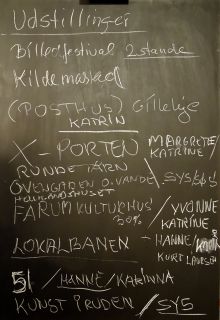 Udstillinger
Billedfestival 2 stande
Kildemasked
(POSTHUS) Gilleleje
KATRIN
X-PORTEN MARGRETE/
KATRINE/
RUNDETÅRN
OVENGADEN O. VANDE /SYS/
HOLMENSHUSET
FARUM KULTURHUS /YVONNE
50% KATRINE
LOKALBANEN -HANNE/
KURT LAURSEN
5/ /HANNE/KATRINNA
KUNST I RUDEN /SYS